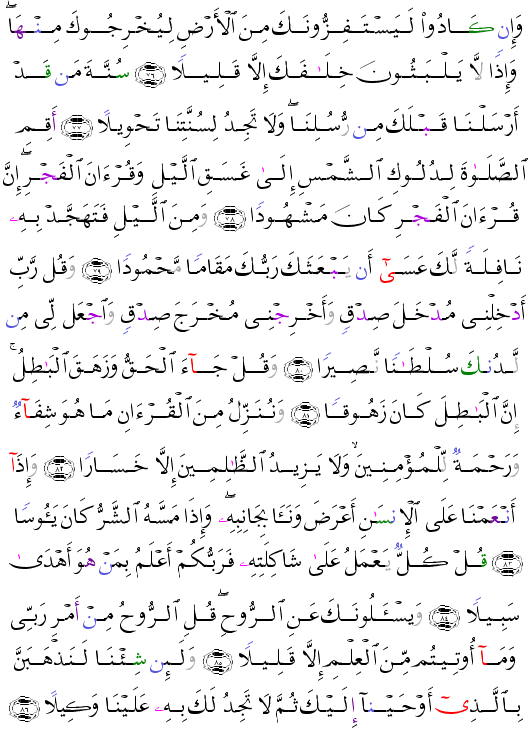 وَإِن كَادُوا۟ لَيَسْتَفِزُّونَكَ مِنَ ٱلْأَرْضِ لِيُخْرِجُوكَ مِنْهَا ۖ
وَإِذًا لَّا يَلْبَثُونَ خِلَـٰفَكَ إِلَّا قَلِيلًا ﴿٧٦﴾ سُنَّةَ مَن قَدْ
أَرْسَلْنَا قَبْلَكَ مِن رُّسُلِنَا ۖ وَلَا تَجِدُ لِسُنَّتِنَا تَحْوِيلًا ﴿٧٧﴾ أَقِمِ
ٱلصَّلَوٰةَ لِدُلُوكِ ٱلشَّمْسِ إِلَىٰ غَسَقِ ٱلَّيْلِ وَقُرْءَانَ ٱلْفَجْرِ ۖ إِنَّ
قُرْءَانَ ٱلْفَجْرِ كَانَ مَشْهُودًا ﴿٧٨﴾ وَمِنَ ٱلَّيْلِ فَتَهَجَّدْ بِهِۦ
نَافِلَةً لَّكَ عَسَىٰٓ أَن يَبْعَثَكَ رَبُّكَ مَقَامًا مَّحْمُودًا ﴿٧٩﴾ وَقُل رَّبِّ
أَدْخِلْنِى مُدْخَلَ صِدْقٍ وَأَخْرِجْنِى مُخْرَجَ صِدْقٍ وَٱجْعَل لِّى مِن
لَّدُنكَ سُلْطَـٰنًا نَّصِيرًا ﴿٨٠﴾ وَقُلْ جَآءَ ٱلْحَقُّ وَزَهَقَ ٱلْبَـٰطِلُ ۚ
إِنَّ ٱلْبَـٰطِلَ كَانَ زَهُوقًا ﴿٨١﴾ وَنُنَزِّلُ مِنَ ٱلْقُرْءَانِ مَا هُوَ شِفَآءٌ
وَرَحْمَةٌ لِّلْمُؤْمِنِينَ ۙ وَلَا يَزِيدُ ٱلظَّـٰلِمِينَ إِلَّا خَسَارًا ﴿٨٢﴾ وَإِذَآ
أَنْعَمْنَا عَلَى ٱلْإِنسَـٰنِ أَعْرَضَ وَنَـَٔا بِجَانِبِهِۦ ۖ وَإِذَا مَسَّهُ ٱلشَّرُّ كَانَ يَـُٔوسًا
﴿٨٣﴾ قُلْ كُلٌّ يَعْمَلُ عَلَىٰ شَاكِلَتِهِۦ فَرَبُّكُمْ أَعْلَمُ بِمَنْ هُوَ أَهْدَىٰ
سَبِيلًا ﴿٨٤﴾ وَيَسْـَٔلُونَكَ عَنِ ٱلرُّوحِ ۖ قُلِ ٱلرُّوحُ مِنْ أَمْرِ رَبِّى
وَمَآ أُوتِيتُم مِّنَ ٱلْعِلْمِ إِلَّا قَلِيلًا ﴿٨٥﴾ وَلَئِن شِئْنَا لَنَذْهَبَنَّ
بِٱلَّذِىٓ أَوْحَيْنَآ إِلَيْكَ ثُمَّ لَا تَجِدُ لَكَ بِهِۦ عَلَيْنَا وَكِيلًا ﴿٨٦﴾